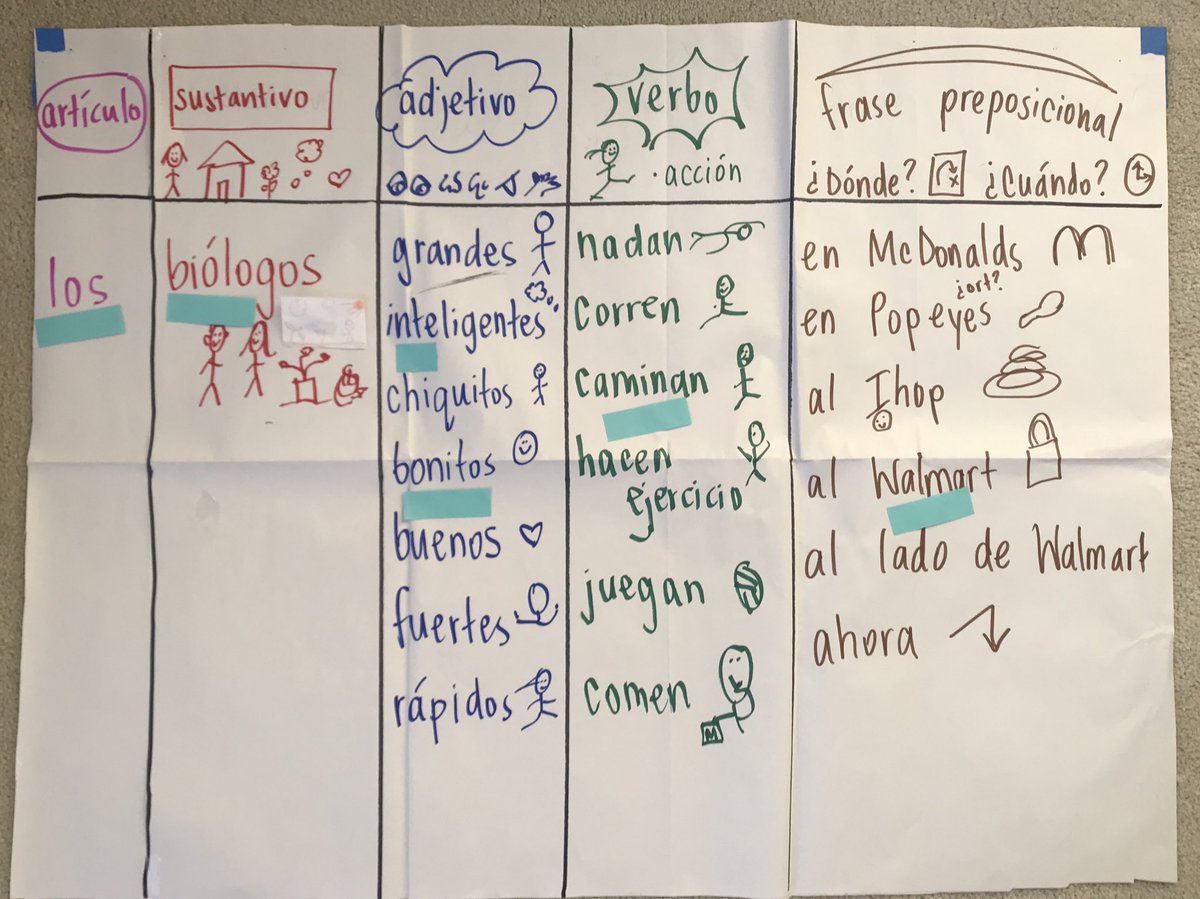 artículo
los
sustantivo
biólogos
adjetivo
grandes
inteligentes
chiquitos
bonitos
buenos
fuertes
rápidos
verbo
· acción
nadan
corren
caminan
hacen
ejercicio
juegan
comen
M
frase preposicional
¿Dónde? ¿Cuándo?
en McDonalds
¿ort?
en Popeyes
al Ihop
al Walmart
al lado de Walmart
ahora